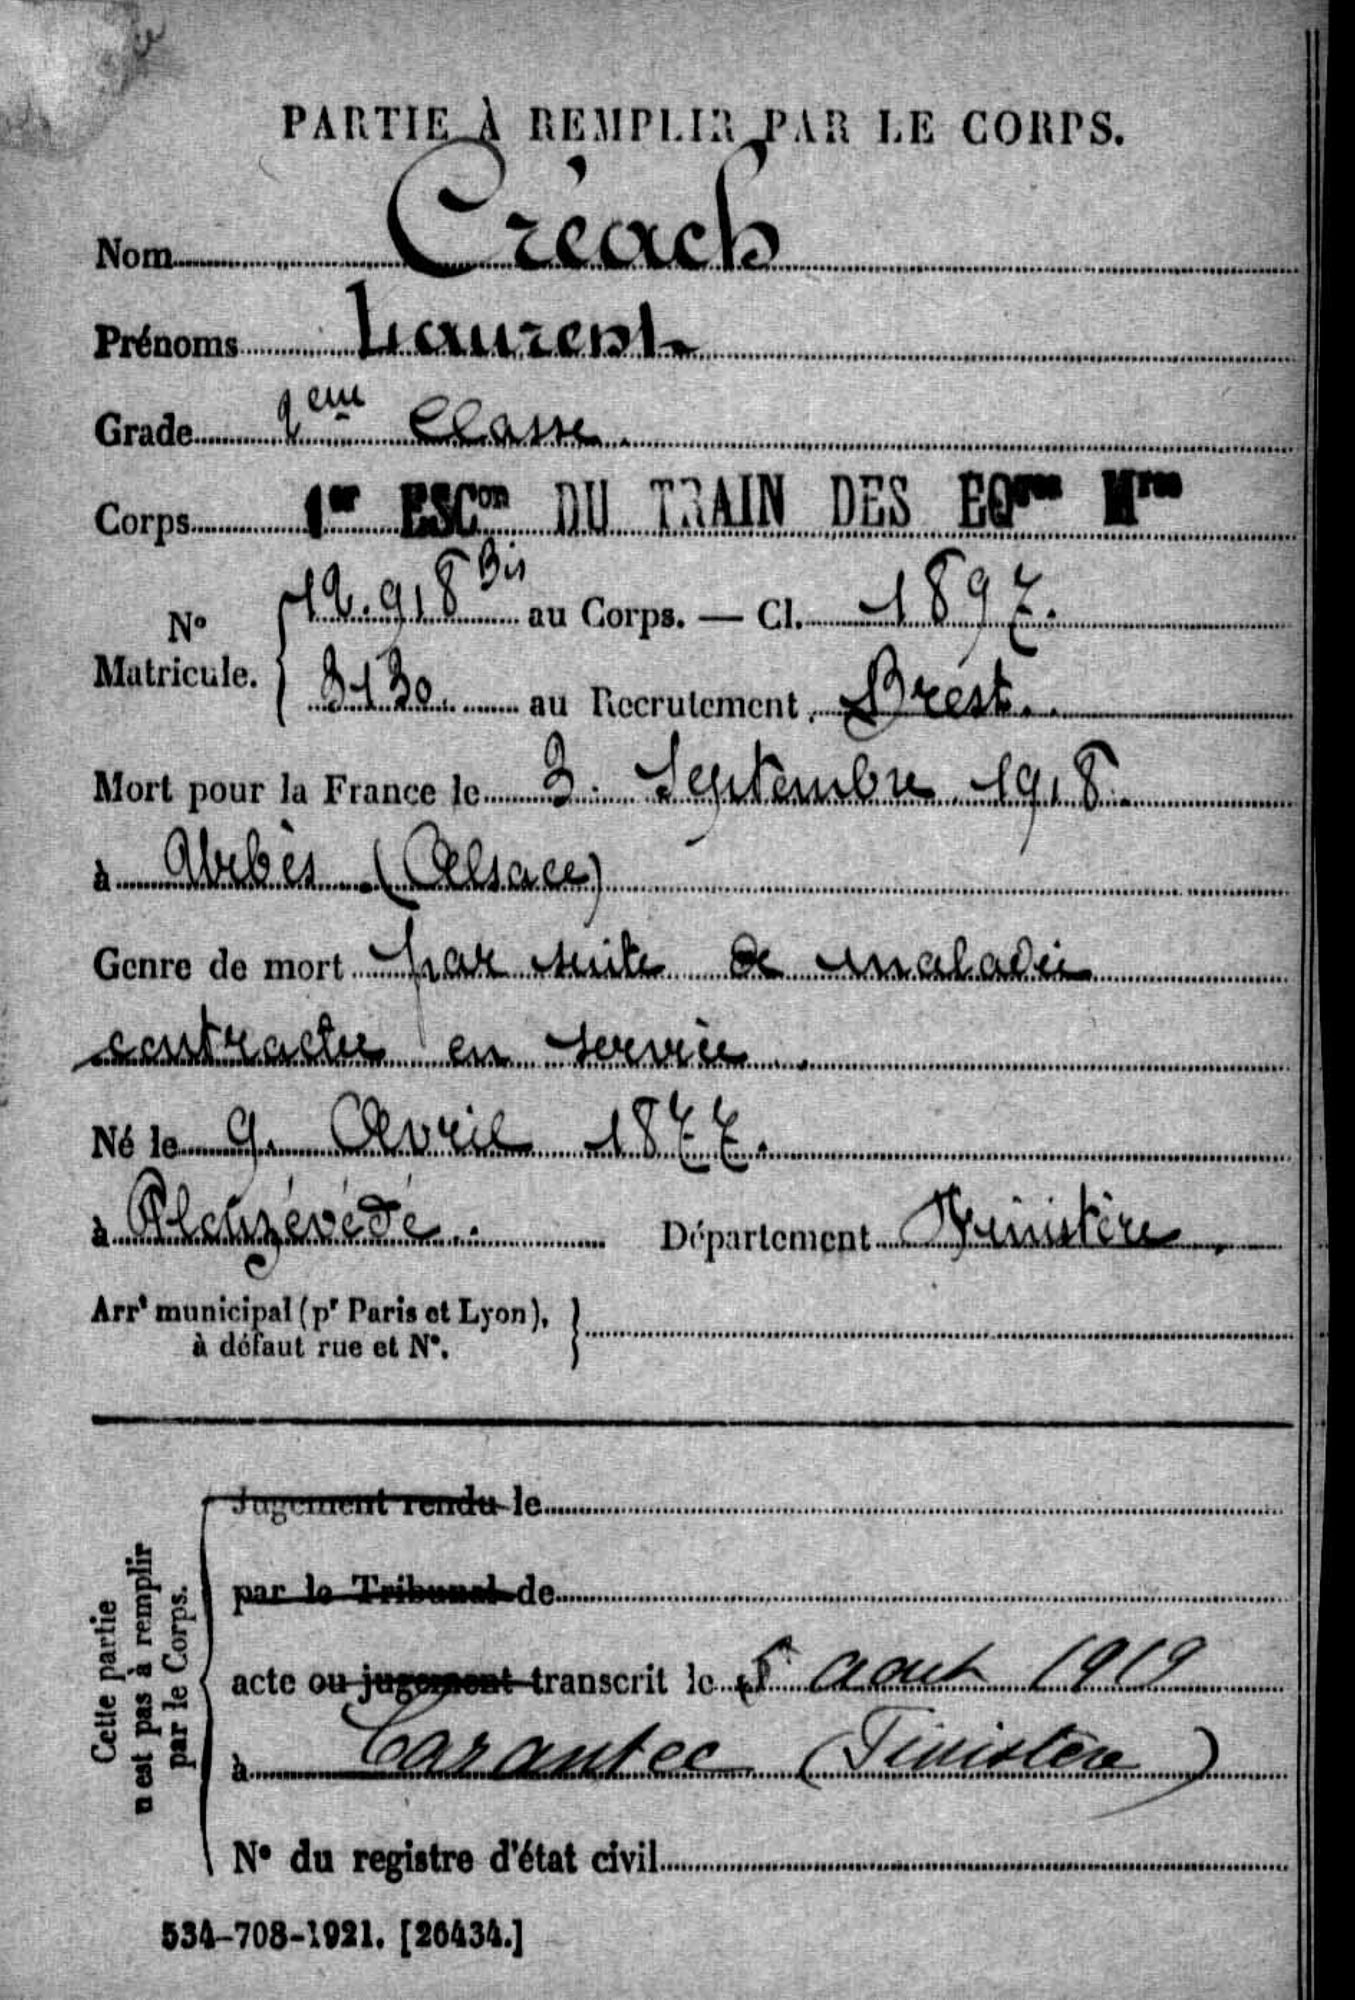 PARTIE À REMPLIR PAR LE CORPS.
Nom Créach
Prénoms Laurent
Grade 2eme Classe.
Corps 1er ESCon DU TRAIN DES EQges Mres
No Matricule. 12.918 Bis au Corps. — Cl. 1897.
3130. au Recrutement Brest.
Mort pour la France le 3. Septembre 1918.
à Urbès (Alsace)
Genre de mort par suite de maladie
contractée en service.
Né le 9. Avril 1877.
à Plouzévédé. Département Finistère.
Arrt municipal (pr Paris et Lyon),
à défaut rue et No.
Cette partie
n'est pas à remplir
par le Corps.
Jugement rendu le
par le Tribunal de
acte ou jugement transcrit le 5 aout 1919
à Carantec (Finistère)
No du registre d'état civil
534-708-1921. [26434.]